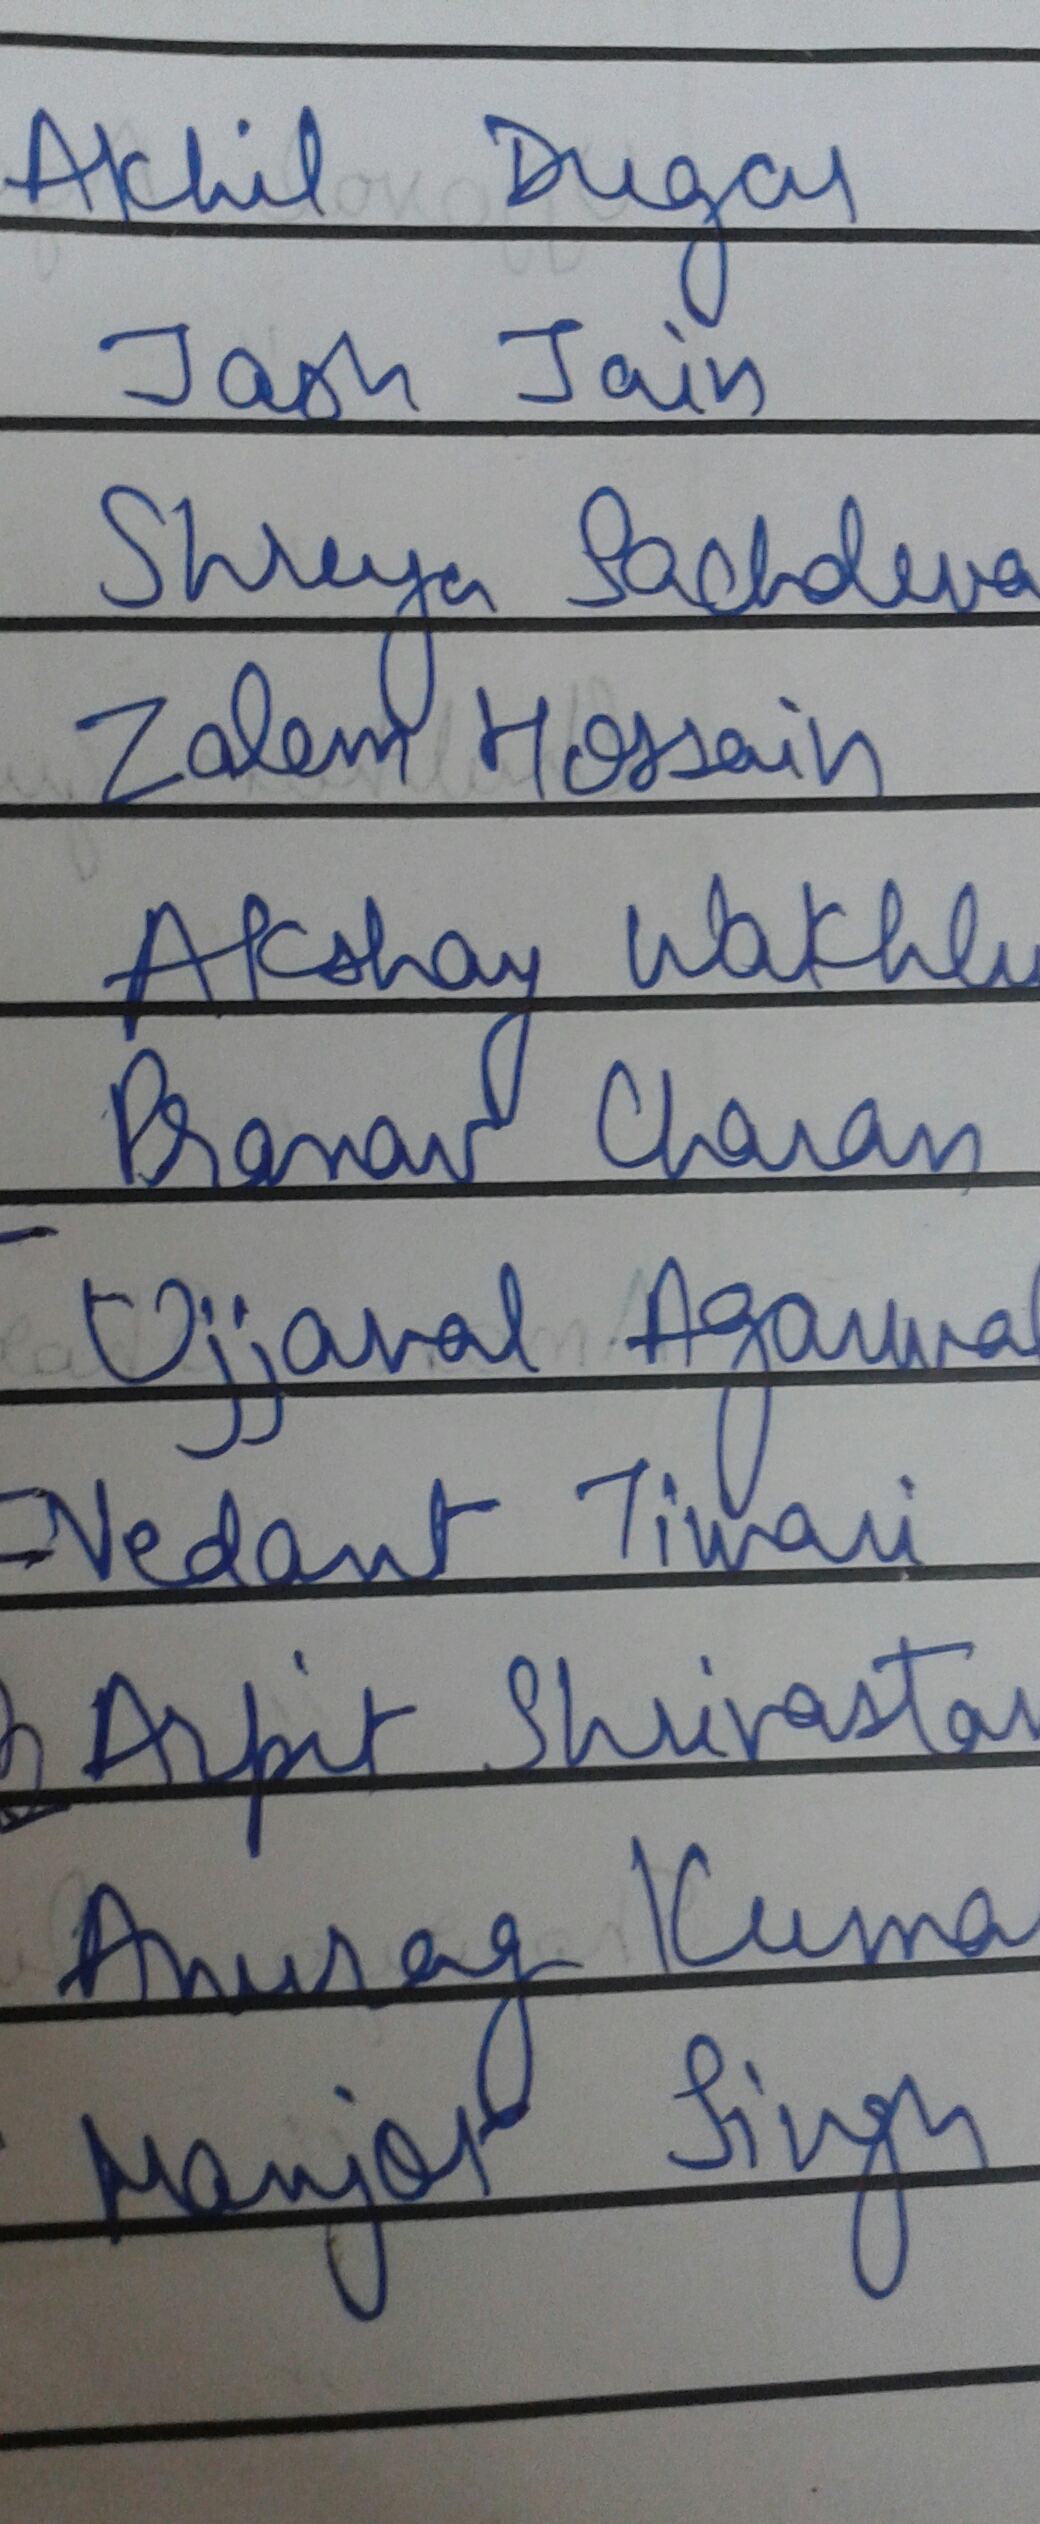 Akhil Dugar
Jash Jain
Shreya Sachdeva
Zalem Hossain
Akshay Wakhlu
Pranav Charan
Ujjaval Agarwal
Vedant Tiwari
Arpit Shrivastav
Anurag Kuma
Manjot Singh